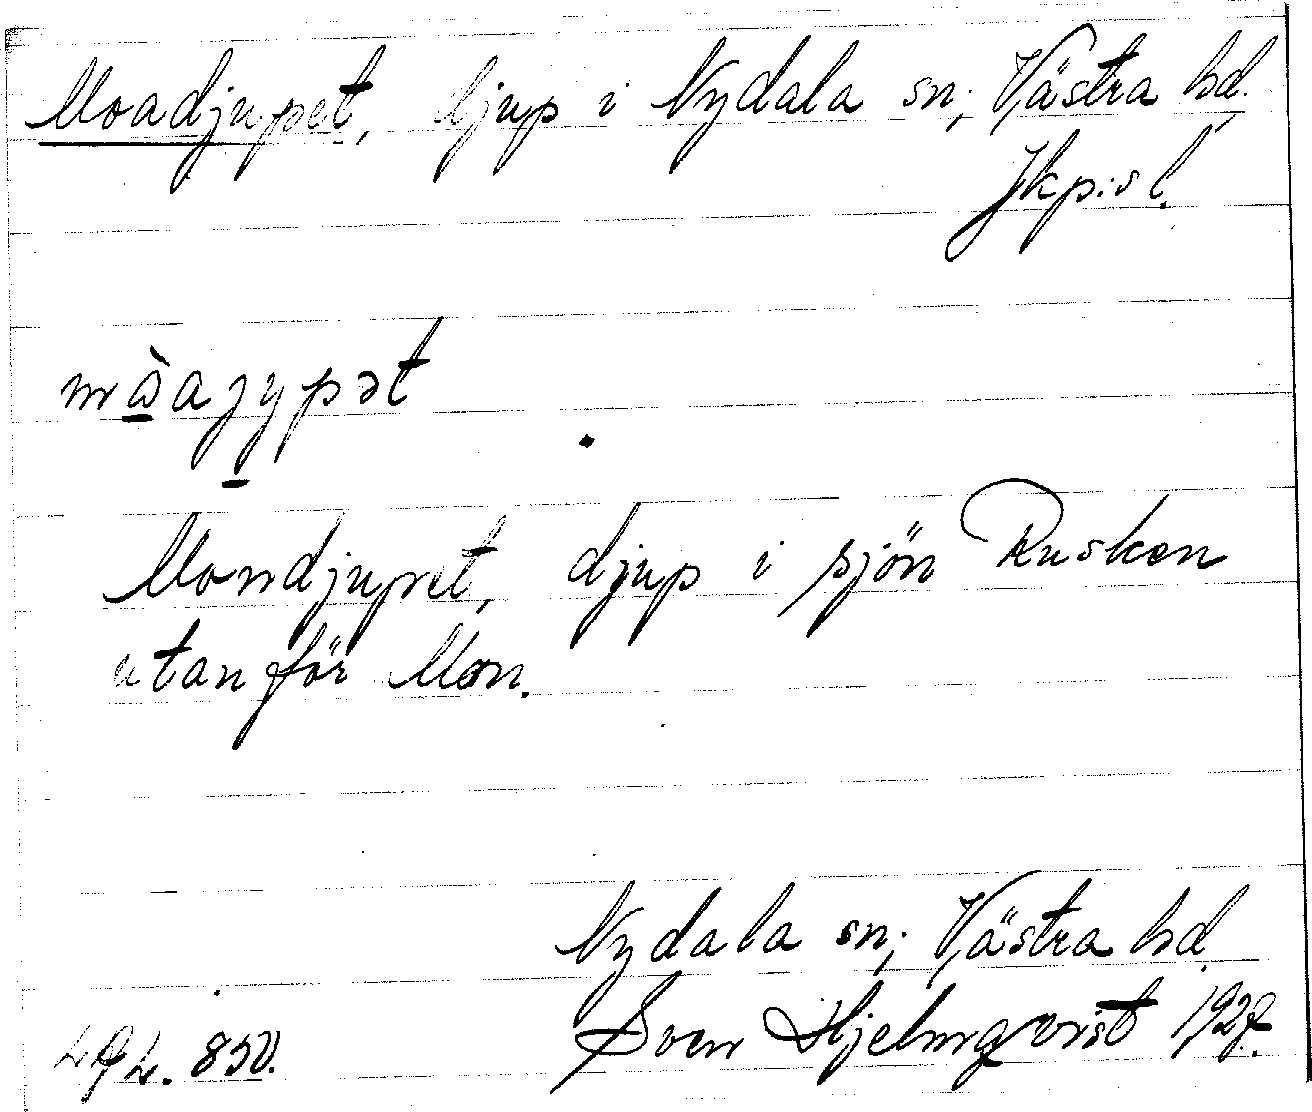 Moadjupet, djup i Nydala sn; Västra hd.
Jkp:s l.
Mondjupet, djup i sjön Rusken
utanför Mon.
Nydala sn; Västra hd.
Sven Hjelmqvist 1927.
850.